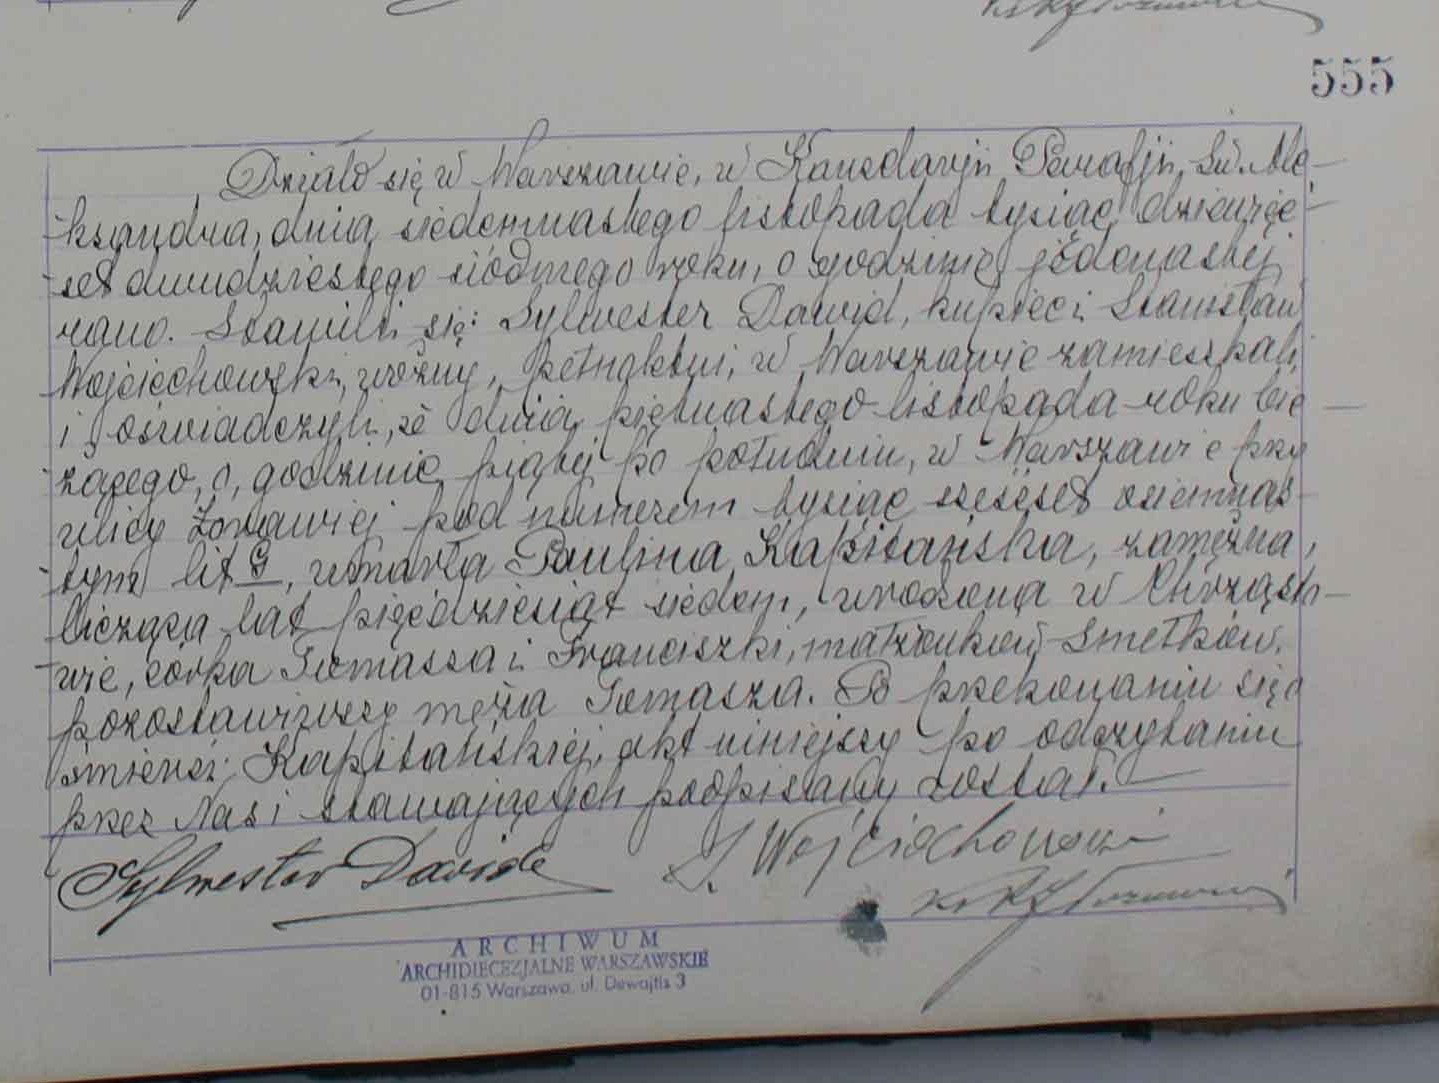 555
Działo się w Warszawie, w Kancelaryi Parafji Św. Ale-
-ksandra, dnia siedemnastego listopada tysiąc dziewięć-
-set dwudziestego siódmego roku, o godzinie jedenastej
rano. Stawili się: Sylwester Dawid, kupiec i Stanisław
Wojciechowski, woźny, pełnoletni, w Warszawie zamieszkali,
i oświadczyli, że dnia piętnastego listopada roku bie-
-żącego, o godzinie piątej po południu, w Warszawie przy
ulicy Żórawiej pod numerem tysiąc sześćset osiemnas-
-tym lit G, umarła Paulina Kapitańska, zamężna,
licząca lat pięćdziesiąt siedem, urodzona w Chrząst-
-wie, córka Tomasza i Franciszki, małżonków Smetków,
pozostawiwszy męża Tomasza. Po przekonaniu się o
śmierci Kapitańskiej, akt niniejszy po odczytaniu
przez Nas i stawających podpisany został.
Sylwester Dawid S. Wojciechowski
ARCHIWUM
ARCHIDIECEZJALNE WARSZAWSKIE
01-815 Warszawa, ul. Dewajtis 3